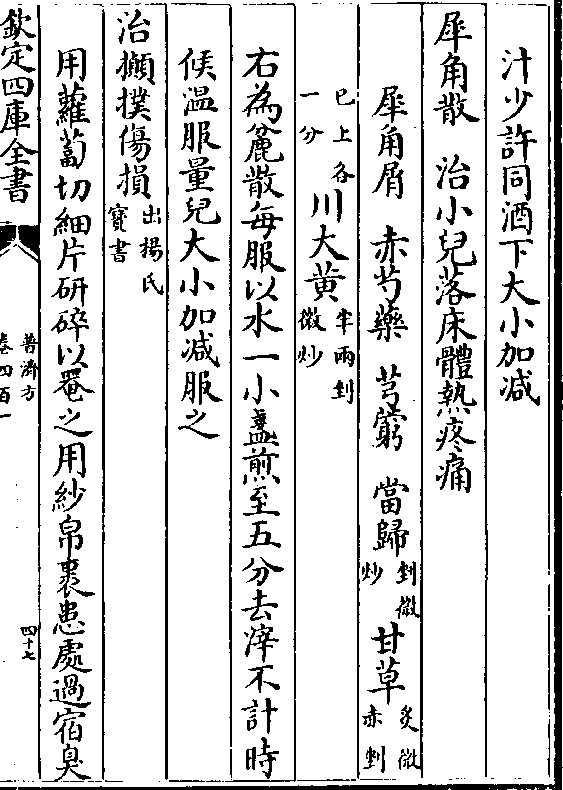 汁少許同酒下大小加減
犀角散 治小兒落床體熱疼痛
犀角屑 赤芍藥 芎藭 當歸剉微炒 甘草炙微赤剉
已上各一分 川大黄半兩剉微炒
右為麄散每服以水一小盞煎至五分去滓不計時
候温服量兒大小加減服之
治攧撲傷損出楊氏寶書
用蘿蔔切細片研碎以罨之用紗帛裹患處過宿臭
欽定四庫全書
普濟方
卷四百一
四十七